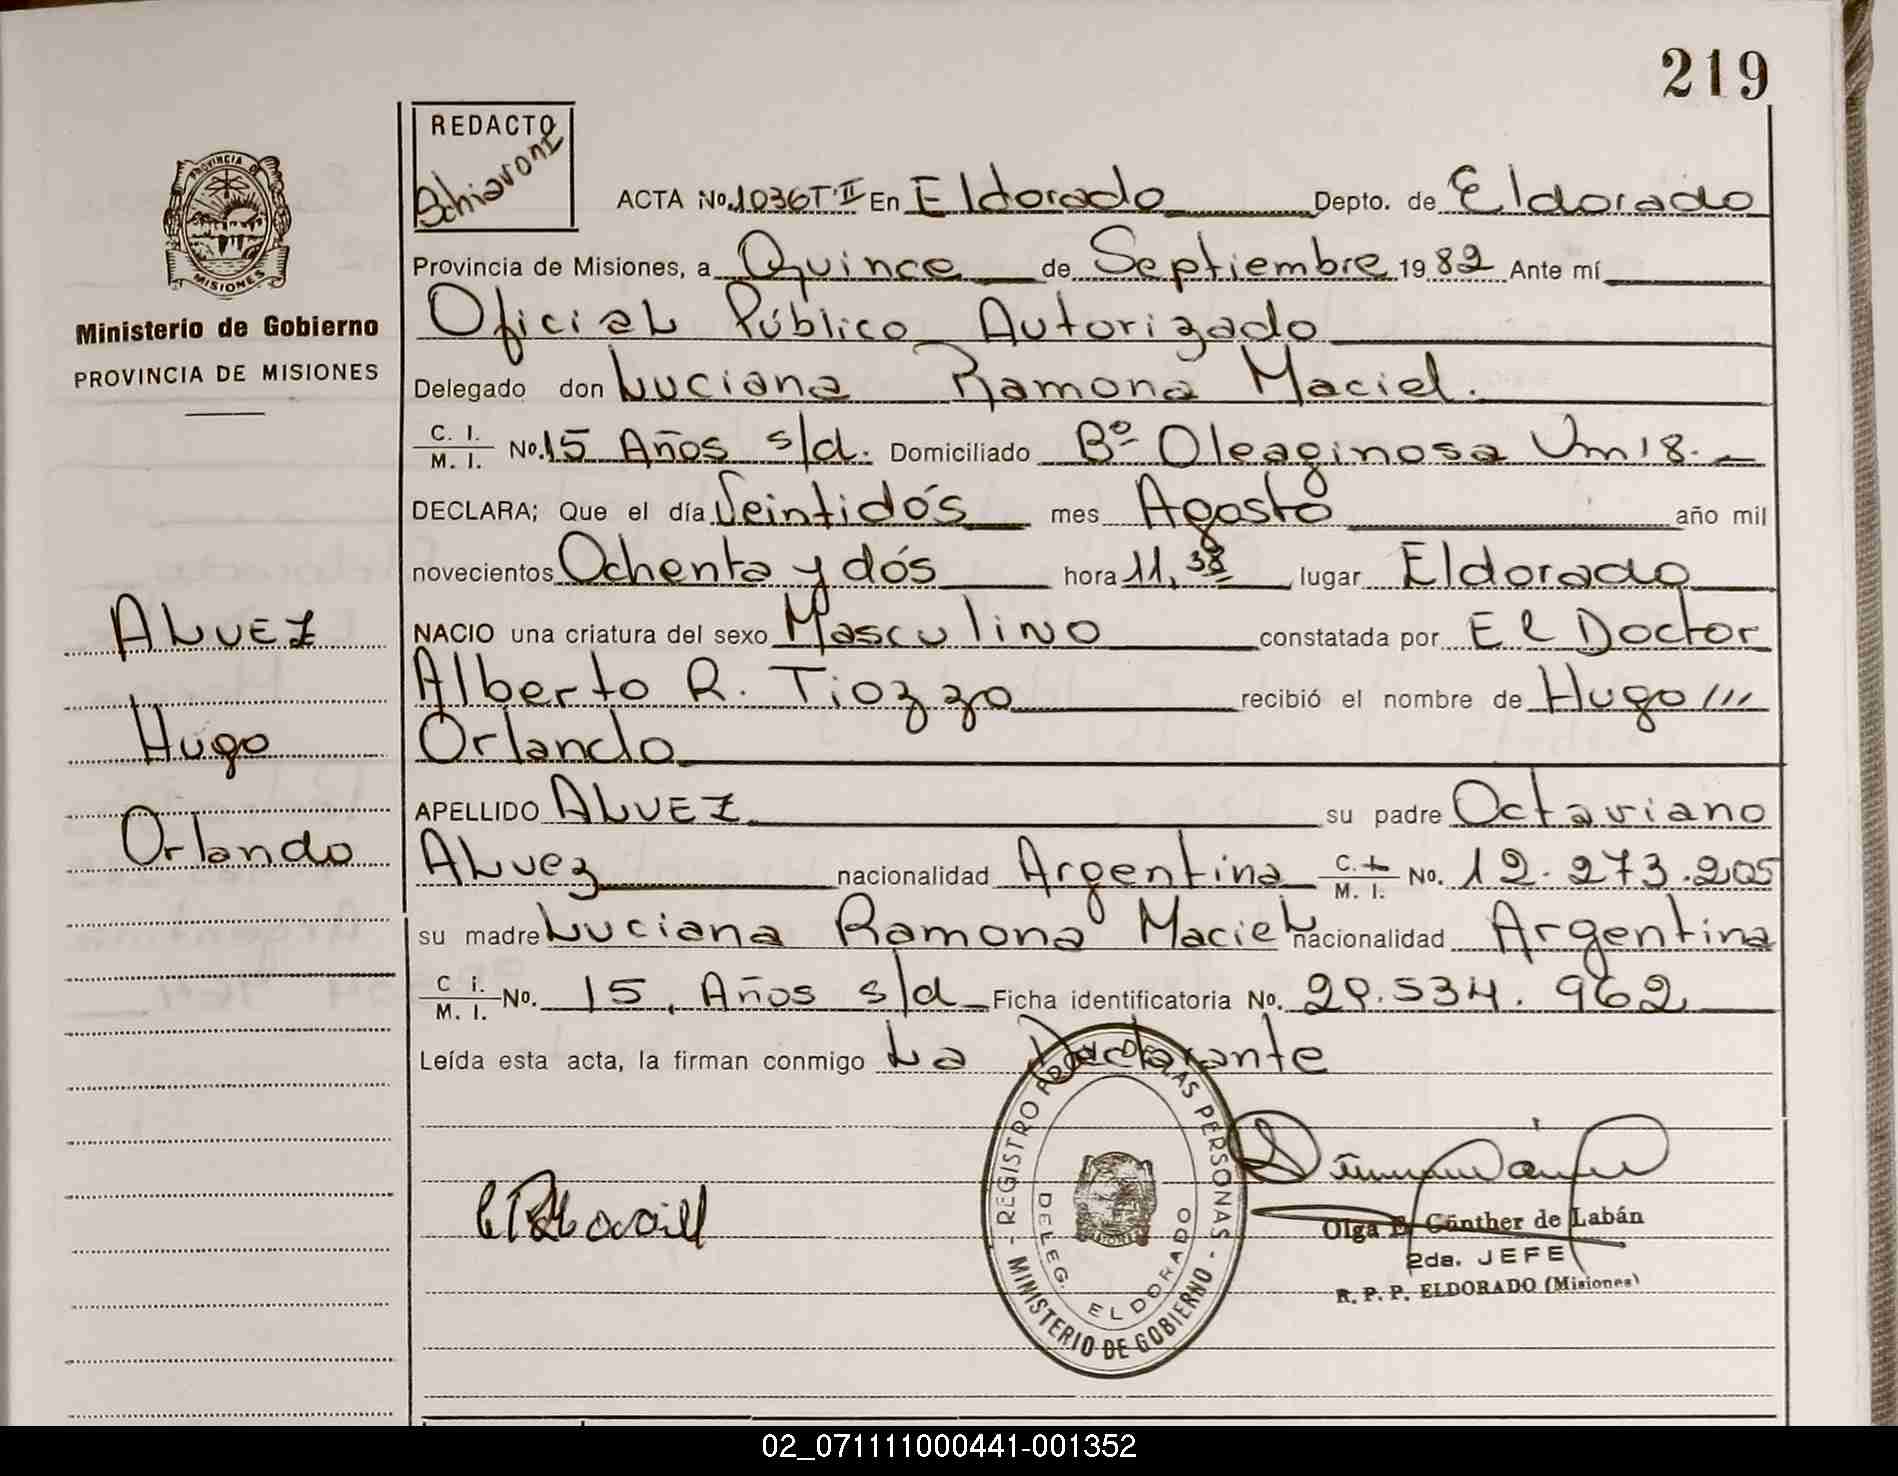 219
REDACTO
Schiaroni
PROVINCIA DE
MISIONES
Ministerio de Gobierno
PROVINCIA DE MISIONES
ACTA No. 1036 T. II En Eldorado Depto. de Eldorado
Provincia de Misiones, a Quince de Septiembre 1982 Ante mí
Oficial Público Autorizado
Delegado don Luciana Ramona Maciel.
C. I. / M. I. No. 15 Años s/d. Domiciliado Bº Oleaginosa Km 18.
DECLARA; Que el día Veintidós mes Agosto año mil
novecientos Ochenta y dós hora 11,38 lugar Eldorado
NACIO una criatura del sexo Masculino constatada por El Doctor
Alberto R. Tiozzo recibió el nombre de Hugo ///
Orlando
APELLIDO ALVEZ su padre Octaviano
Alvez nacionalidad Argentina C. I. / M. I. No. 12.273.205
su madre Luciana Ramona Maciel nacionalidad Argentina
C. i. / M. I. No. 15, Años s/d Ficha identificatoria No. 29.534.962
Leída esta acta, la firman conmigo La Declarante
ALVEZ
Hugo
Orlando
REGISTRO PROV. DE LAS PERSONAS - MINISTERIO DE GOBIERNO -
DELEG. ELDORADO
Olga E. Günther de Labán
2da. JEFE
R. P. P. ELDORADO (Misiones)
02_071111000441-001352